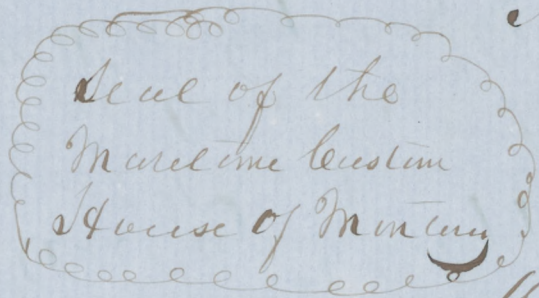 Seal of the
Maritime Custom
House of Monterey